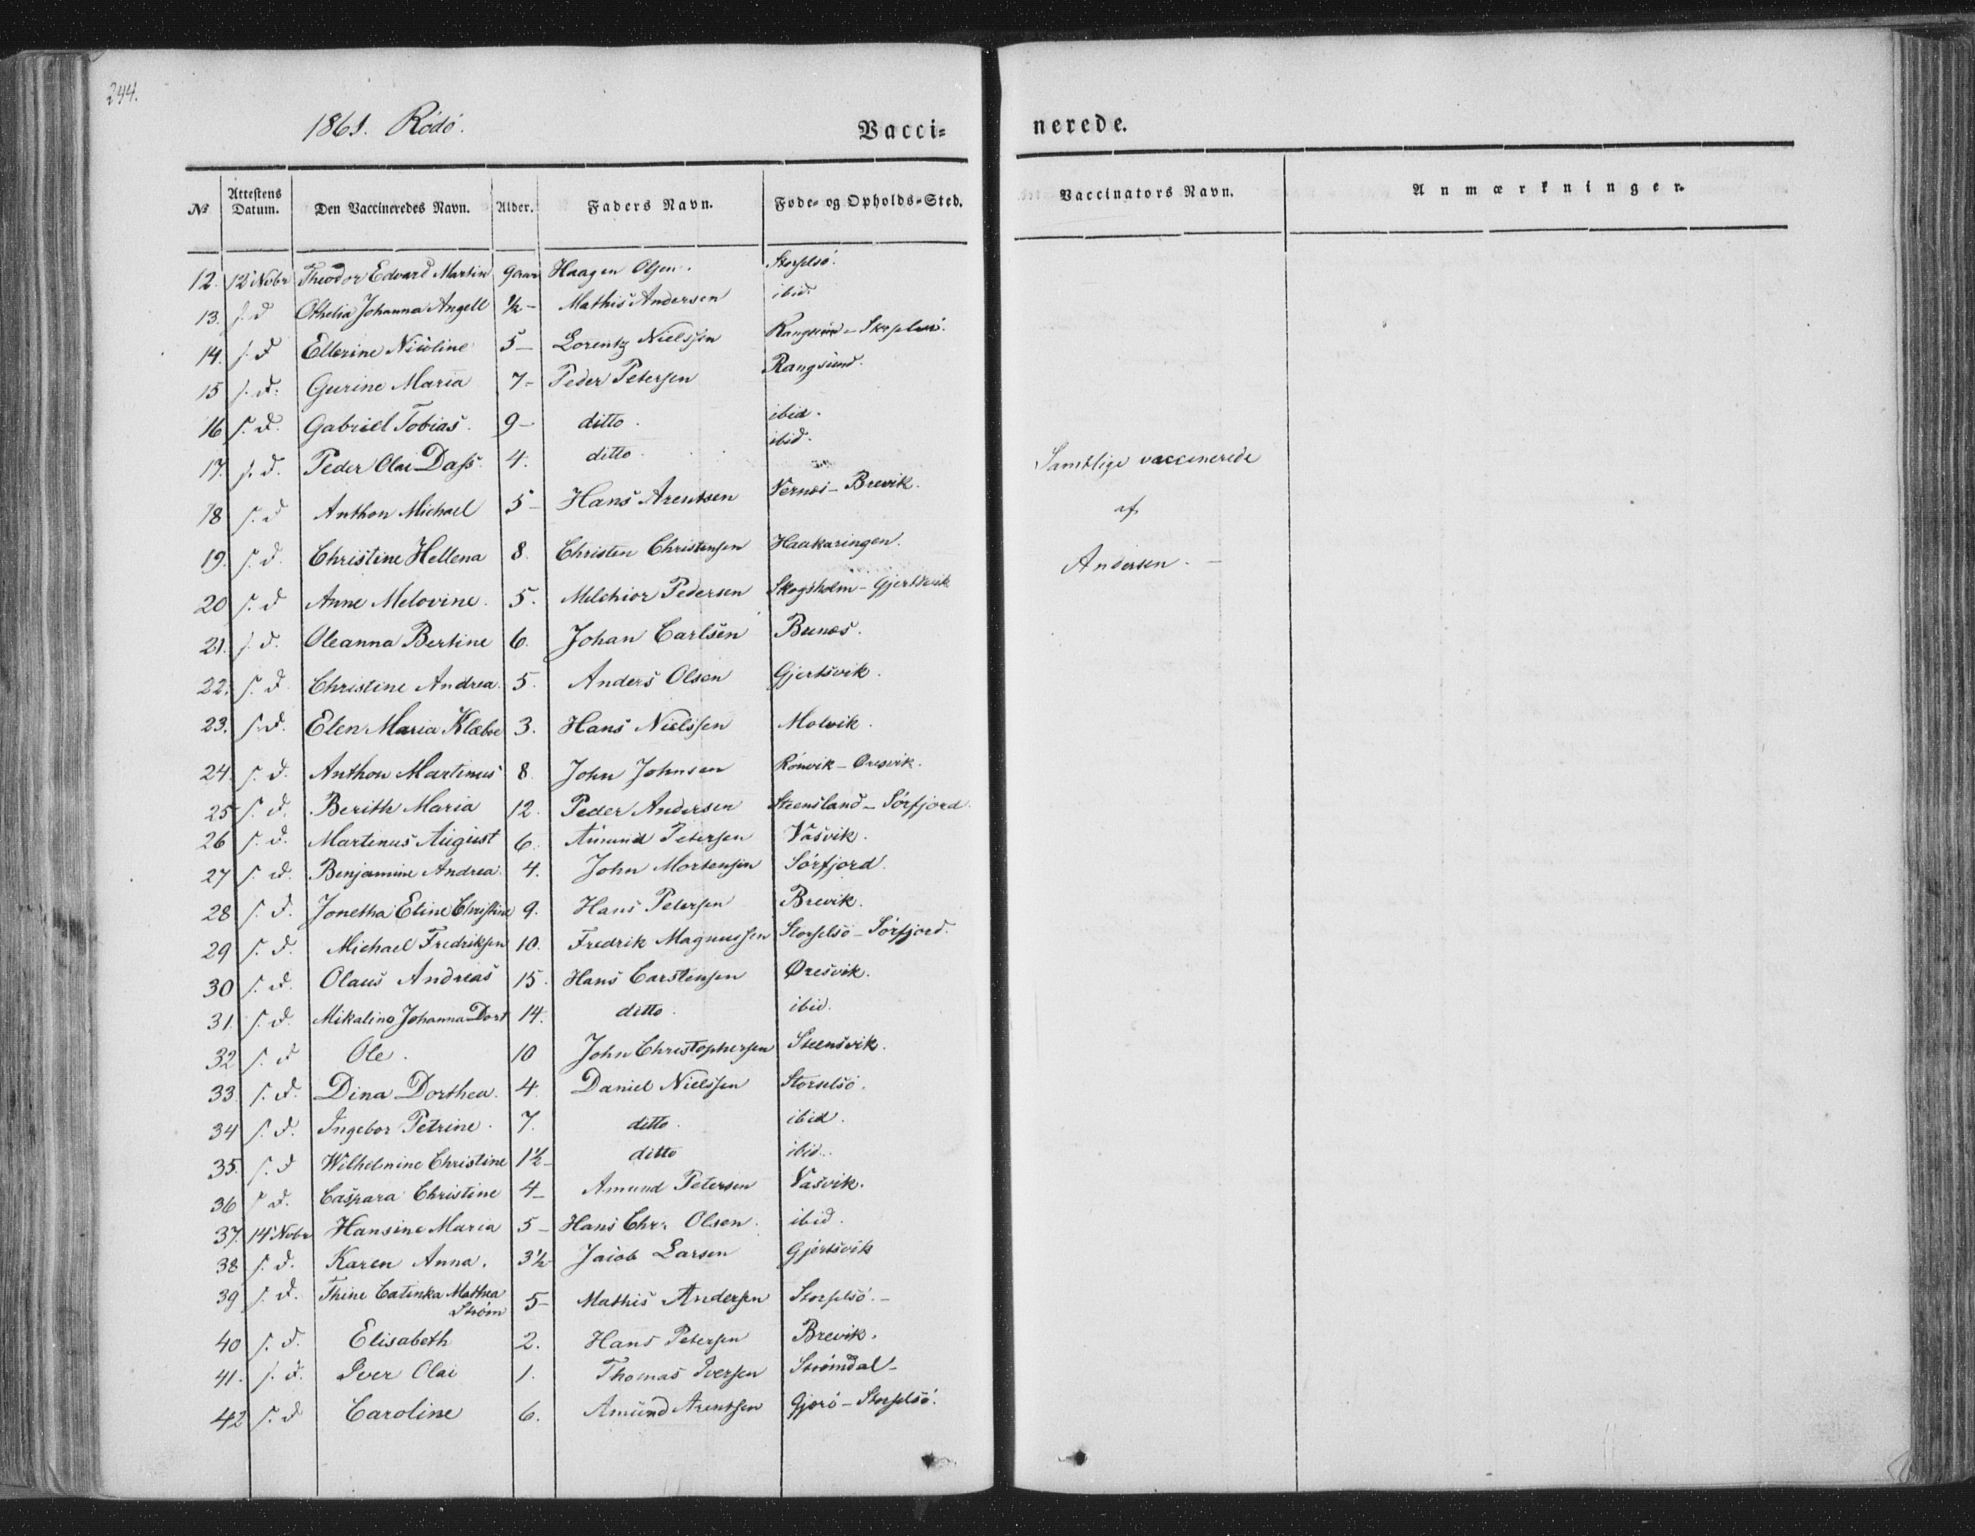 244.
1861. Rödö.
Vacci-
nerede.
№ Attestens Datum. Den Vaccineredes Navn. Alder. Faders Navn. Føde- og Opholds-Sted. Vaccinators Navn. Anmærkninger.
12. 12 Nvbr Theodor Edvard Martin 9 aar Haagen Olsen. Storselsö.
13. s. d Othelia Johanna Angell ½ – Mathis Andersen ibid.
14. s. d Ellerine Nicoline 5 – Lorentz Nielssen Rangsund – Storselsö.
15 s. d. Gurine Maria 7 – Peder Petersen Rangsund.
16 s. d. Gabriel Tobias. 9 – ditto. ibid.
17. s. d. Peder Olai Dass. 4. ditto ibid.
Samtlige vaccinerede
18 s. d Anthon Michael 5 – Hans Arentsen Vernæs – Brevik.
af
19. s. d. Christine Hellena 8. Christen Christensen Haakaringen.
Andersen. –
20 s. d Anne Melovine. 5. Melchior Pedersen Skogsholm – Gjertsvik
21. s. d. Oleanna Bertine 6. Johan Carlsen Bunæs.
22. s. d. Christine Andrea. 5. Anders Olsen Gjertsvik.
23. s. d. Elen Maria Klæboe 3. Hans Nielssen Molvik.
24. s. d. Anthon Martinus 8. John Johnsen Rönvik – Øresvik.
25 s. d. Berith Maria 12. Peder Andersen Steensland – Sörfjord.
26 s. d. Martinus August 6. Amund Petersen Vasvik.
27 s. d. Benjamine Andrea. 4. John Mortensen Sörfjord.
28 s. d. Jonetha Eline Christine 9. Hans Petersen Brevik.
29 s. d. Michael Fredriksen 10. Fredrik Magnussen Storselsö – Sörfjord.
30 s. d. Olaus Andreas 15. Hans Carstensen Øresvik.
31. s. d. Mikaline Johanna Dort 14. ditto. ibid.
32 s. d Ole. 10 John Christophersen Steensvik.
33. s. d. Dina Dorthea. 4. Daniel Nielssen Storselsö.
34 s. d. Ingebor Petrine. 7. ditto. ibid.
35. s. d Wilhelmine Christine 1½ – ditto ibid.
36 s. d. Caspara Christine 4 – Amund Petersen Vasvik.
37. 14 Nvbr Hansine Maria 5 – Hans Chr. Olsen. ibid.
38 s. d. Karen Anna. 3½ Jacob Larsen Gjertsvik
39 s. d. Thine Catinka Mathea
Strøm 5 – Mathis Andersen Storselsö. –
40 s. d. Elisabeth 2. Hans Petersen Brevik.
41. s. d. Iver Olai 1. Thomas Iversen Strømdal –
42 s. d Caroline 6. Amund Arentsen Gjerö – Storselsö.